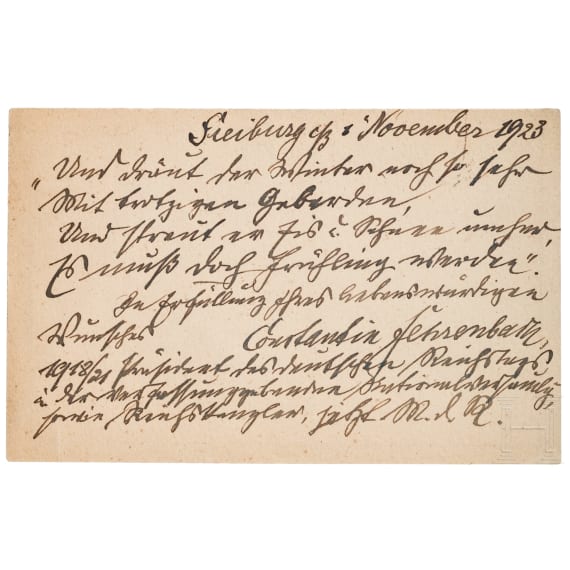 Freiburg i/B 1 November 1923
„Und dräut der Winter noch so sehr
Mit trotzigen Geberden,
Und streut er Eis u. Schnee umher,
Es muß doch Frühling werden".
In Erfüllung Ihres liebenswürdigen
Wunsches Constantin Fehrenbach,
1918/21 Präsident des deutschen Reichstags
u. der verfassunggebenden Nationalversamlg,
sowie Reichskanzler, jetzt M. d. R.